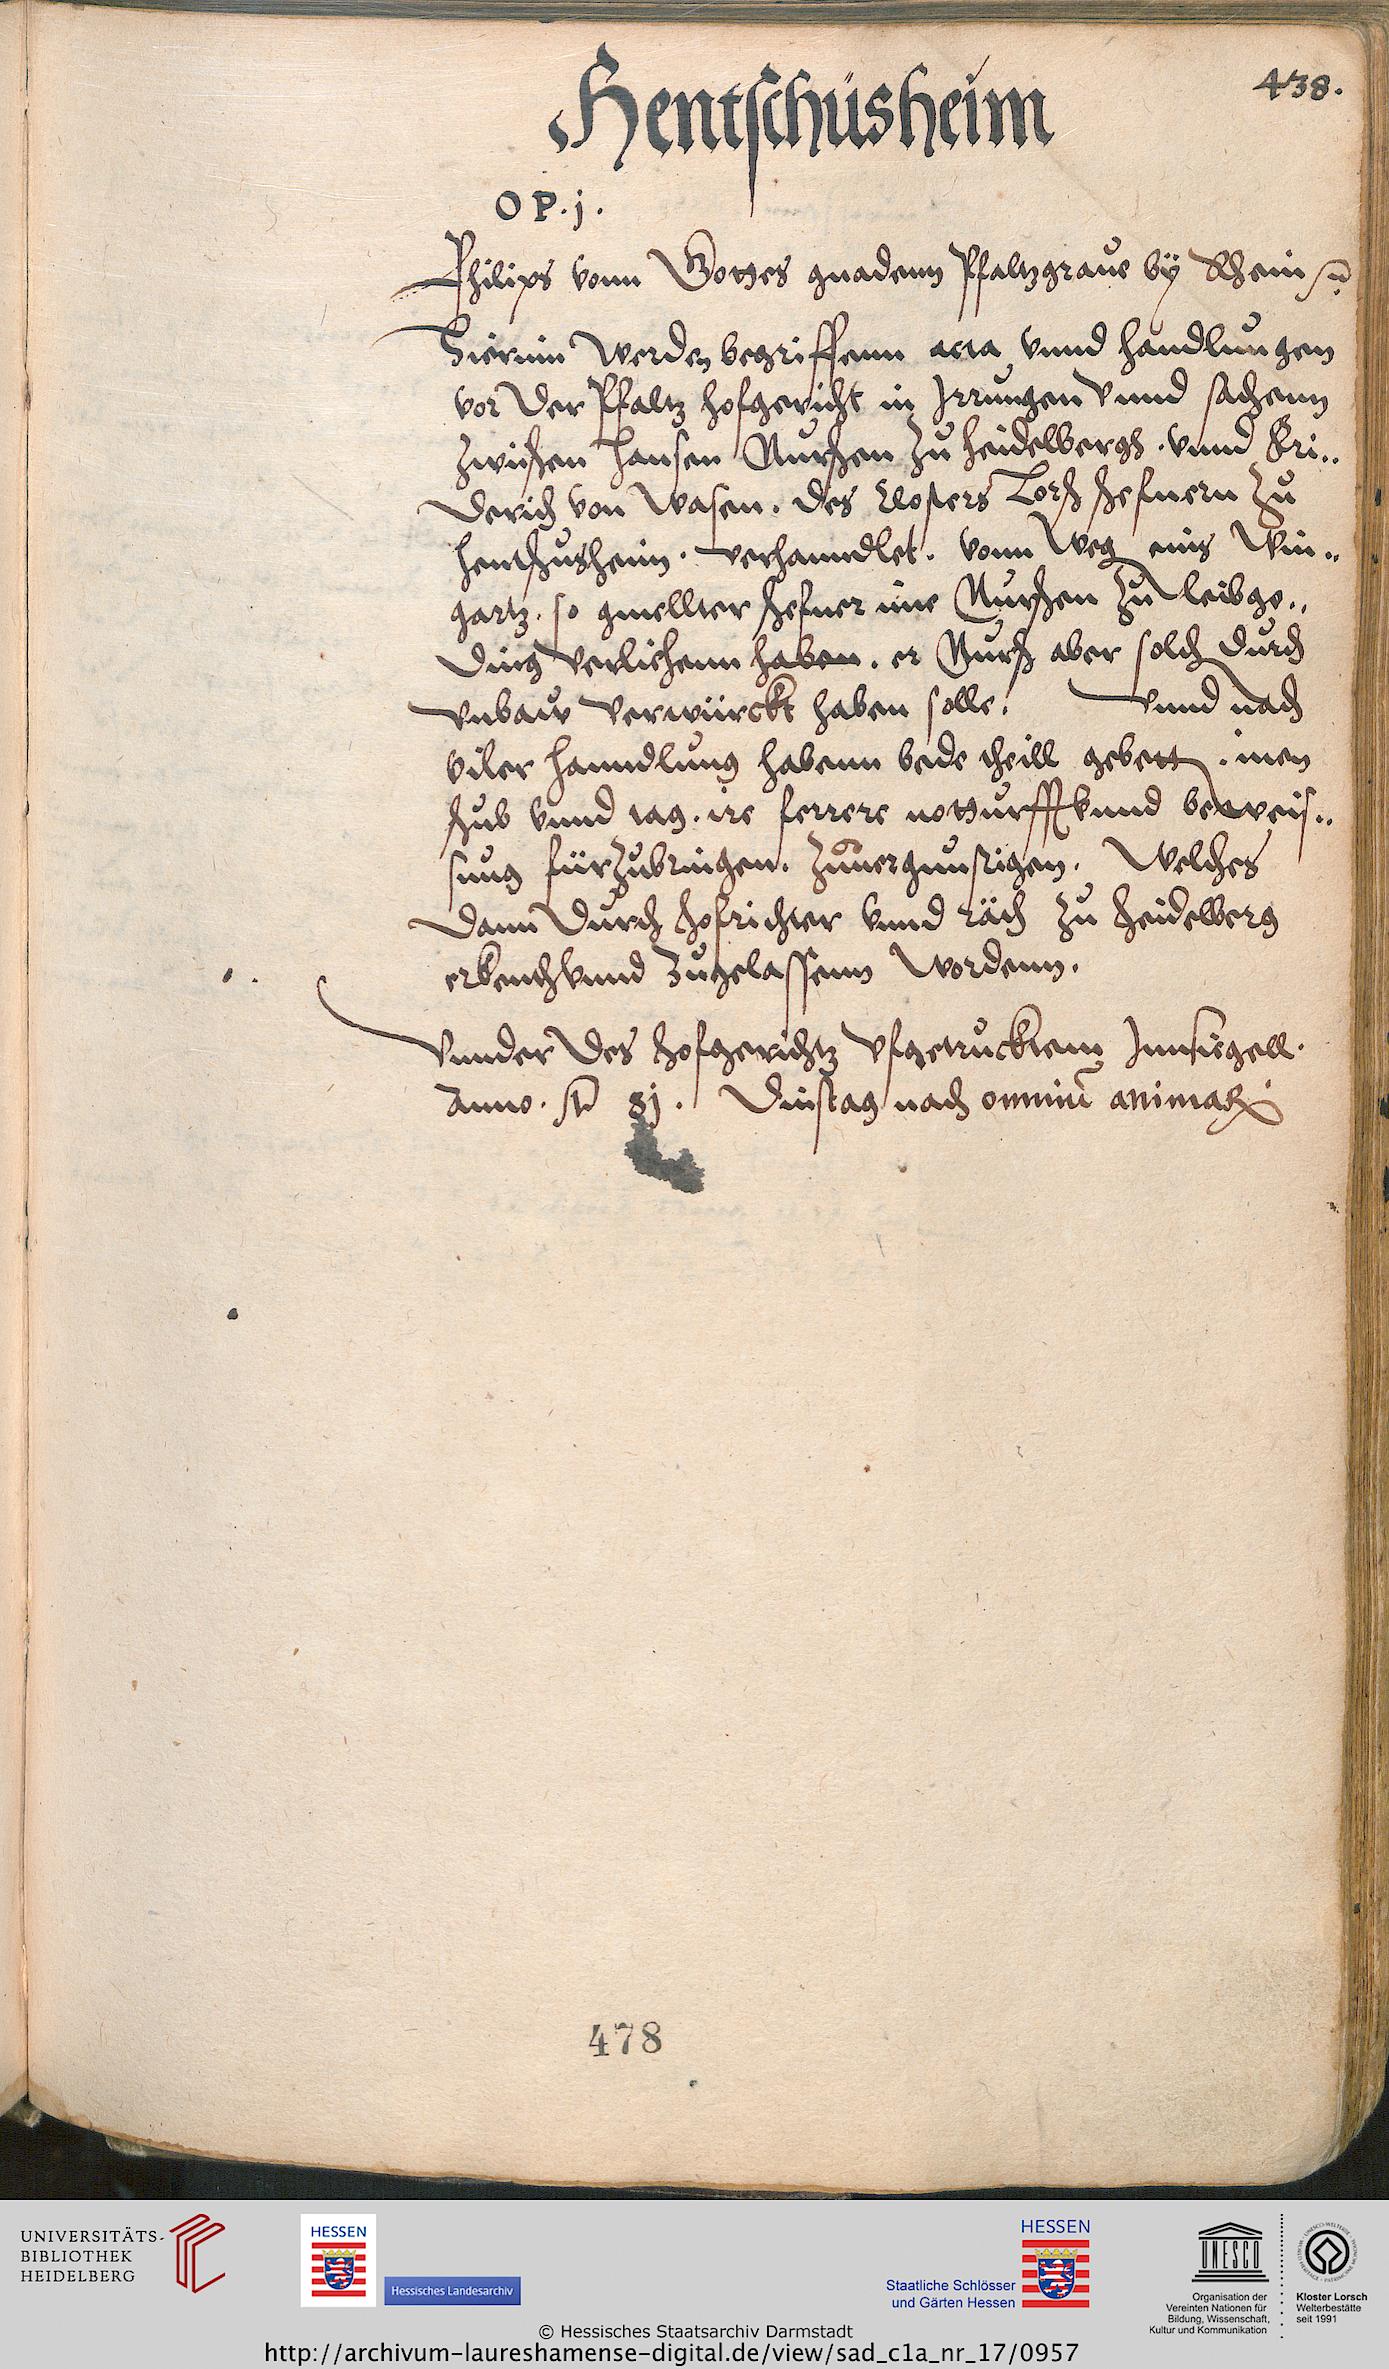 438.
Hentschüsheim
O P. j.
Philips vonn Gottes gnadenn Pfaltzgraue by Rhein
Hierinn werden begriffenn acta vnnd handlungen
vor der Pfaltz hofgericht in Irrungen vnnd sachenn
zwischen Hansen Nurschen zu heidelbergh. vnnd Fri..
derich von Wasen. des Closters Lorsch schefnern zu
hentschusheim. verhanndlet. vonn weg eins Win..
gartz. so gmellter schefner ime Nurschen zu leibge..
ding verlichenn haben. er Nursch aber solch durch
vnbauw verwürckt haben solle. vnnd nach
viler hanndlung habenn bede theill gebett. inen
schub vnnd tag. ire ferrere notturfft vnnd beweis..
sung fürzubringen. zuuergunstigen. Welches
dann durch hofrichter vnnd räth zu Heidelberg
erkenth vnnd zugelassenn wordenn.
Vnnder des hofgerichtz vfgetrucktem Innsiegell.
Anno. 8j. Dinstag nach omniū animarū
478
UNIVERSITÄTS-
BIBLIOTHEK
HEIDELBERG
HESSEN
Hessisches Landesarchiv
HESSEN
Staatliche Schlösser
und Gärten Hessen
UNESCO
Organisation der
Vereinten Nationen für
Bildung, Wissenschaft,
Kultur und Kommunikation
Kloster Lorsch
Welterbestätte
seit 1991
© Hessisches Staatsarchiv Darmstadt
http://archivum-laureshamense-digital.de/view/sad_c1a_nr_17/0957